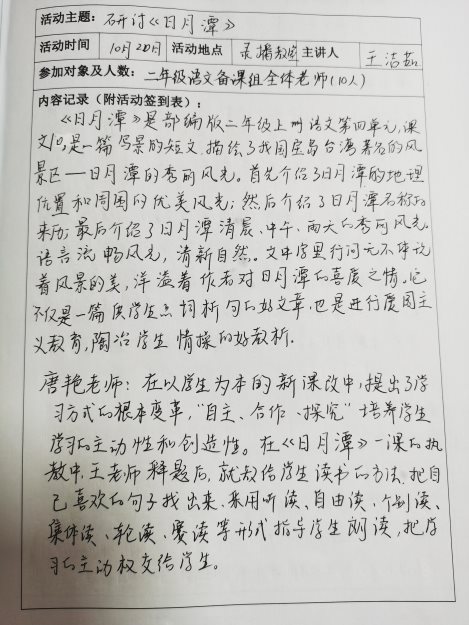 活动主题: 研讨《日月潭》
活动时间 10月20日 活动地点 录播教室 主讲人 王洁茹
参加对象及人数: 二年级语文备课组全体老师(10人)
内容记录(附活动签到表):
《日月潭》是部编版二年级上册语文第四单元,课
文10,是一篇写景的短文,描绘了我国宝岛台湾著名的风
景区—日月潭的秀丽风光。首先介绍了日月潭的地理
位置和周围的优美风光;然后介绍了日月潭名称的
来历;最后介绍了日月潭清晨、中午、雨天的秀丽风光。
语言流畅风光,清新自然。文中字里行间无不传说
着风景的美,洋溢着作者对日月潭的喜爱之情。它
不仅是一篇供学生点词析句的好文章,也是进行爱国主
义教育,陶冶学生情操的好教析.
唐艳老师:在以学生为本的新课改中,提出了学
习方式的根本变革,"自主、合作、探究"培养学生
学习的主动性和创造性。在《日月潭》一课的执
教中,王老师释题后,就教给学生读书的方法,把自
己喜欢的句子找出来,采用听读、自由读、个别读、
集体读、轮读、赛读等形式指导学生朗读,把学
习的主动权交给学生。